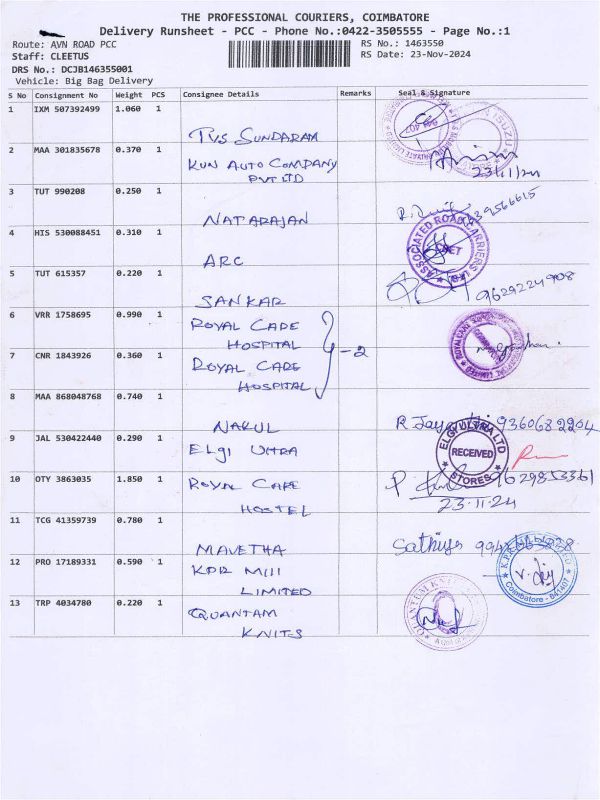 THE PROFESSIONAL COURIERS, COIMBATORE
Delivery Runsheet - PCC - Phone No.:0422-3505555 - Page No.:1
Route: AVN ROAD PCC
RS No.: 1463550
Staff: CLEETUS
RS Date: 23-Nov-2024
DRS No.: DCJB146355001
Vehicle: Big Bag Delivery
S No Consignment No Weight PCS Consignee Details Remarks Seal & Signature
1 IXM 507392499 1.060 1
TVS SUNDARAM
2 MAA 301835678 0.370 1 KUN AUTO COMPANY
PVT LTD
23/11/24
3 TUT 990208 0.250 1
NATARAJAN
4 HIS 530088451 0.310 1
ARC
ASSOCIATED ROAD CARRIERS LTD
5 TUT 615357 0.220 1
SANKAR
9629224908
6 VRR 1758695 0.990 1 ROYAL CARE
HOSPITAL
7 CNR 1843926 0.360 1 ROYAL CARE
HOSPITAL
-2
8 MAA 868048768 0.740 1
NAKUL
9360682204
9 JAL 530422440 0.290 1 ELGI ULTRA
ELGI ULTRA LTD
RECEIVED
STORES
10 OTY 3863035 1.850 1 ROYAL CARE
HOSTEL
9629853361
23.11.24
11 TCG 41359739 0.780 1
MAVETHA
Sathiya
12 PRO 17189331 0.590 1 KPR MILL
LIMITED
Coimbatore - 641407
13 TRP 4034780 0.220 1 QUANTAM
KNITS